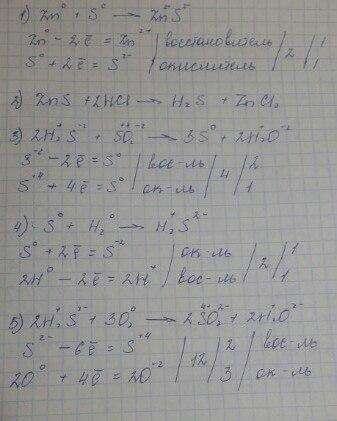 1) Zn⁰ + S⁰ → Zn²⁺S²⁻
Zn⁰ - 2ē = Zn²⁺ | восстановитель | 2 | 1
S⁰ + 2ē = S²⁻ | окислитель | 1
2) ZnS + 2HCl → H₂S + ZnCl₂
3) 2H₂⁺S⁻² + SO₂⁺⁴⁻² → 3S⁰ + 2H₂⁺O⁻²
S⁻² - 2ē = S⁰ | вос-ль | 4 | 2
S⁺⁴ + 4ē = S⁰ | ок-ль | 1
4) S⁰ + H₂⁰ → H₂⁺S²⁻
S⁰ + 2ē = S⁻² | ок-ль | 2 | 1
2H⁰ - 2ē = 2H⁺ | вос-ль | 1
5) 2H₂⁺S²⁻ + 3O₂⁰ → 2SO₂⁺⁴²⁻ + 2H₂⁺O²⁻
S²⁻ - 6ē = S⁺⁴ | 12 | 2 | вос-ль
2O⁰ + 4ē = 2O⁻² | 3 | ок-ль